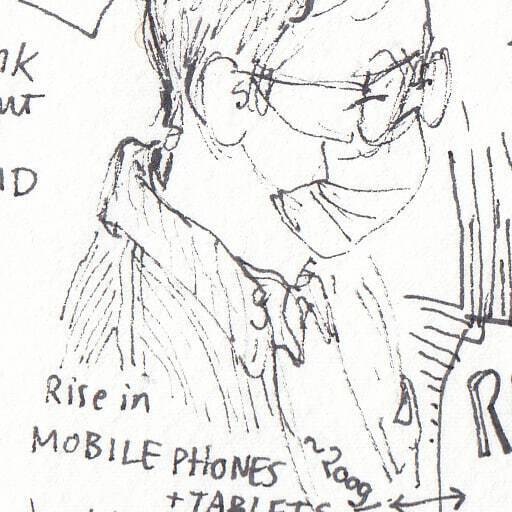 nk
ut
ND
Rise in
MOBILE PHONES
+ TABLETS
~200g
R